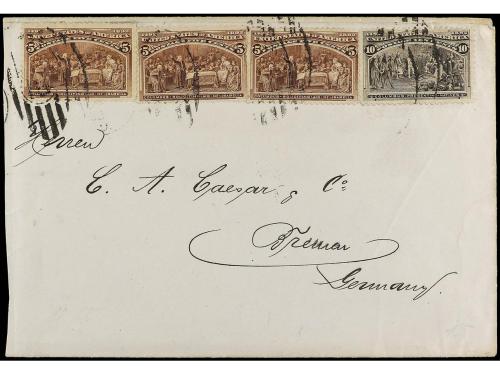 5 UNITED STATES OF AMERICA 5 5 UNITED STATES OF AMERICA 5 5 UNITED STATES OF AMERICA 5 10 10
Herren
C. A. Caesar & Co.
Bremen
Germany.